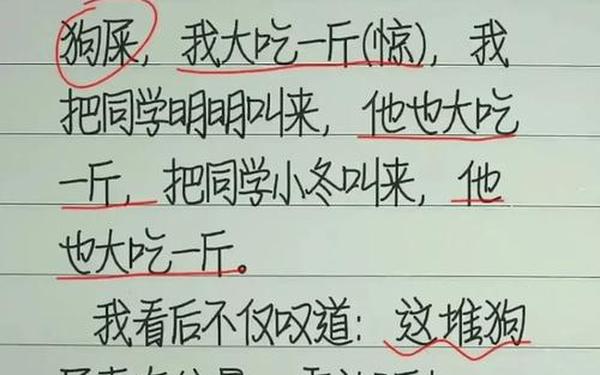 狗屎，我大吃一斤(惊)，我
把同学明明叫来，他也大吃
一斤，把同学小冬叫来，他
也大吃一斤。
我看后不仅叹道：这堆狗